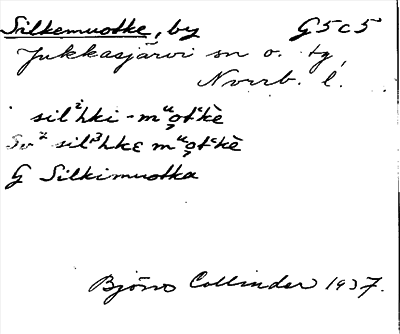 Silkemuotke, by G5c5
Jukkasjärvi sn o. tg,
Norrb. l.
silˀhki-mᵘo̯tᶜkè
Sv² silˀ³hkɛ mᵘo̯tᶜkè
G Silkimuotka
Björn Collinder 1937.